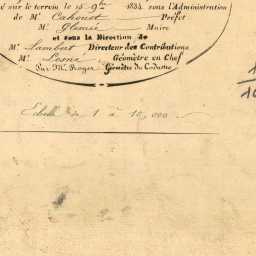 sur le terrein le 15 9bre 1834 sous l'Administration
de Mr Cahouet Préfet
Mr Maire
et sous la Direction de
Mr Lambert Directeur des Contributions
Mr Lesne Géomètre en Chef
Par Mr Proyer Géomètre du Cadastre
Echelle de 1 à 10,000